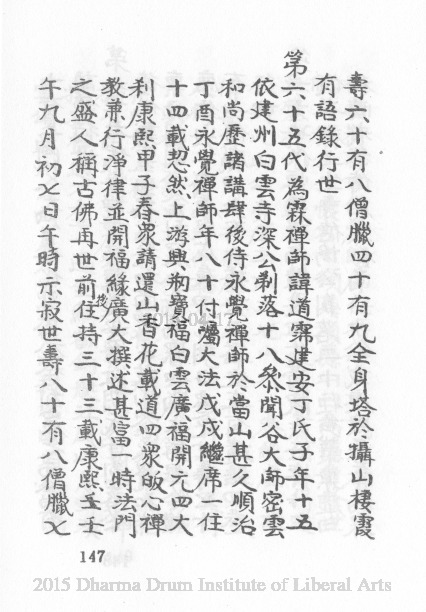 壽六十有八僧臘四十有九全身塔於攝山棲霞
有語錄行世
第六十五代為霖禪師諱道霈建安丁氏子年十五
依建州白雲寺深公剃落十八參聞谷大師密雲
和尚歷諸講肆後侍永覺禪師於當山甚久順治
丁酉永覺禪師年八十付囑大法戊戌繼席一住
十四載忽然上游興剏寶福白雲廣福開元四大
刹康熙甲子春眾請還山香花載道四眾皈心禪
教兼行淨律並開福緣廣大撰述甚富一時法門
之盛人稱古佛再世前後住持三十三載康熙壬
午九月初七日午時示寂世壽八十有八僧臘七
147
2015 Dharma Drum Institute of Liberal Arts